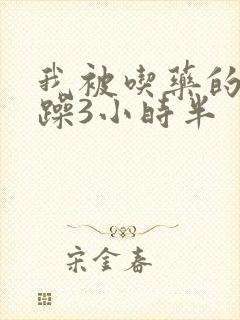 我被喫藥的
躁3小時半
宋金春